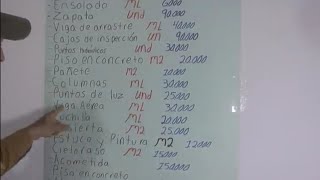 Ensolado ML 6000
- Zapata und 90.000
Viga de arrastre ML 40.000
Cajas de inspección un 90.000
Puntos hidraulicos und 30.000
Piso en concreto M2 20.000
Pañete M2 10.000
Columnas ML 30.000
Puntos de luz und 25.000
Viga Aérea ML 30.000
Cuchilla ML 20.000
M2 25.000
Estuco y Pintura M2 12000
Cieloraso M2 25.000
Acometida 150.000
Piso en concreto